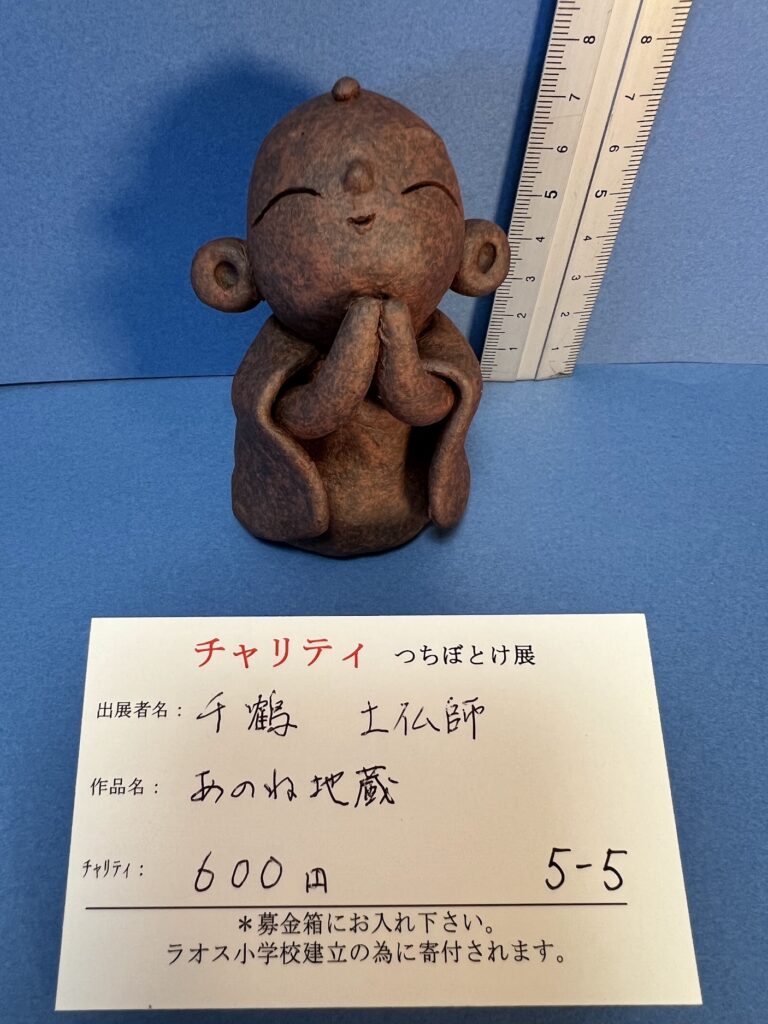 チャリティ つちぼとけ展
出展者名：千鶴 土仏師
作品名：あのね地蔵
ﾁｬﾘﾃｨ：600円 5-5
＊募金箱にお入れ下さい。
ラオス小学校建立の為に寄付されます。
1 2 3 4 5 6 7 8
1 2 3 4 5 6 7 8